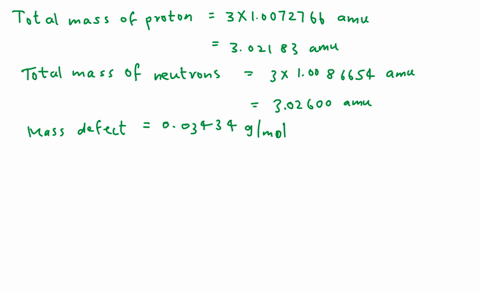 Total mass of proton = 3×1.0072766 amu
= 3.02183 amu
Total mass of neutrons = 3×1.0086654 amu
= 3.02600 amu
Mass defect = 0.03434 g/mol